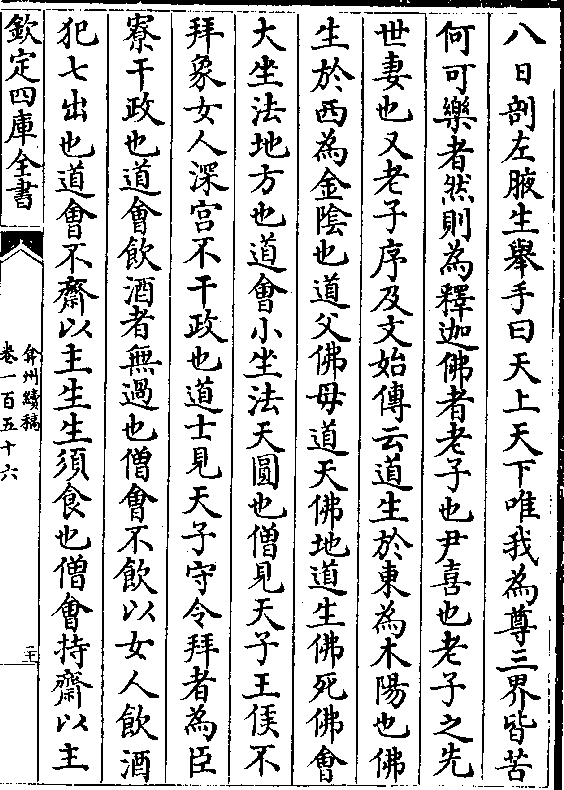 八日剖左腋生舉手曰天上天下唯我為尊三界皆苦
何可樂者然則為釋迦佛者老子也尹喜也老子之先
世妻也又老子序及文始傳云道生於東為木陽也佛
生於西為金陰也道父佛母道天佛地道生佛死佛會
大坐法地方也道會小坐法天圓也僧見天子王侯不
拜象女人深宮不干政也道士見天子守令拜者為臣
寮干政也道會飲酒者無過也僧會不飲以女人飲酒
犯七出也道會不齋以主生生須食也僧會持齋以主
欽定四庫全書
弇州續稿
卷一百五十六
二十